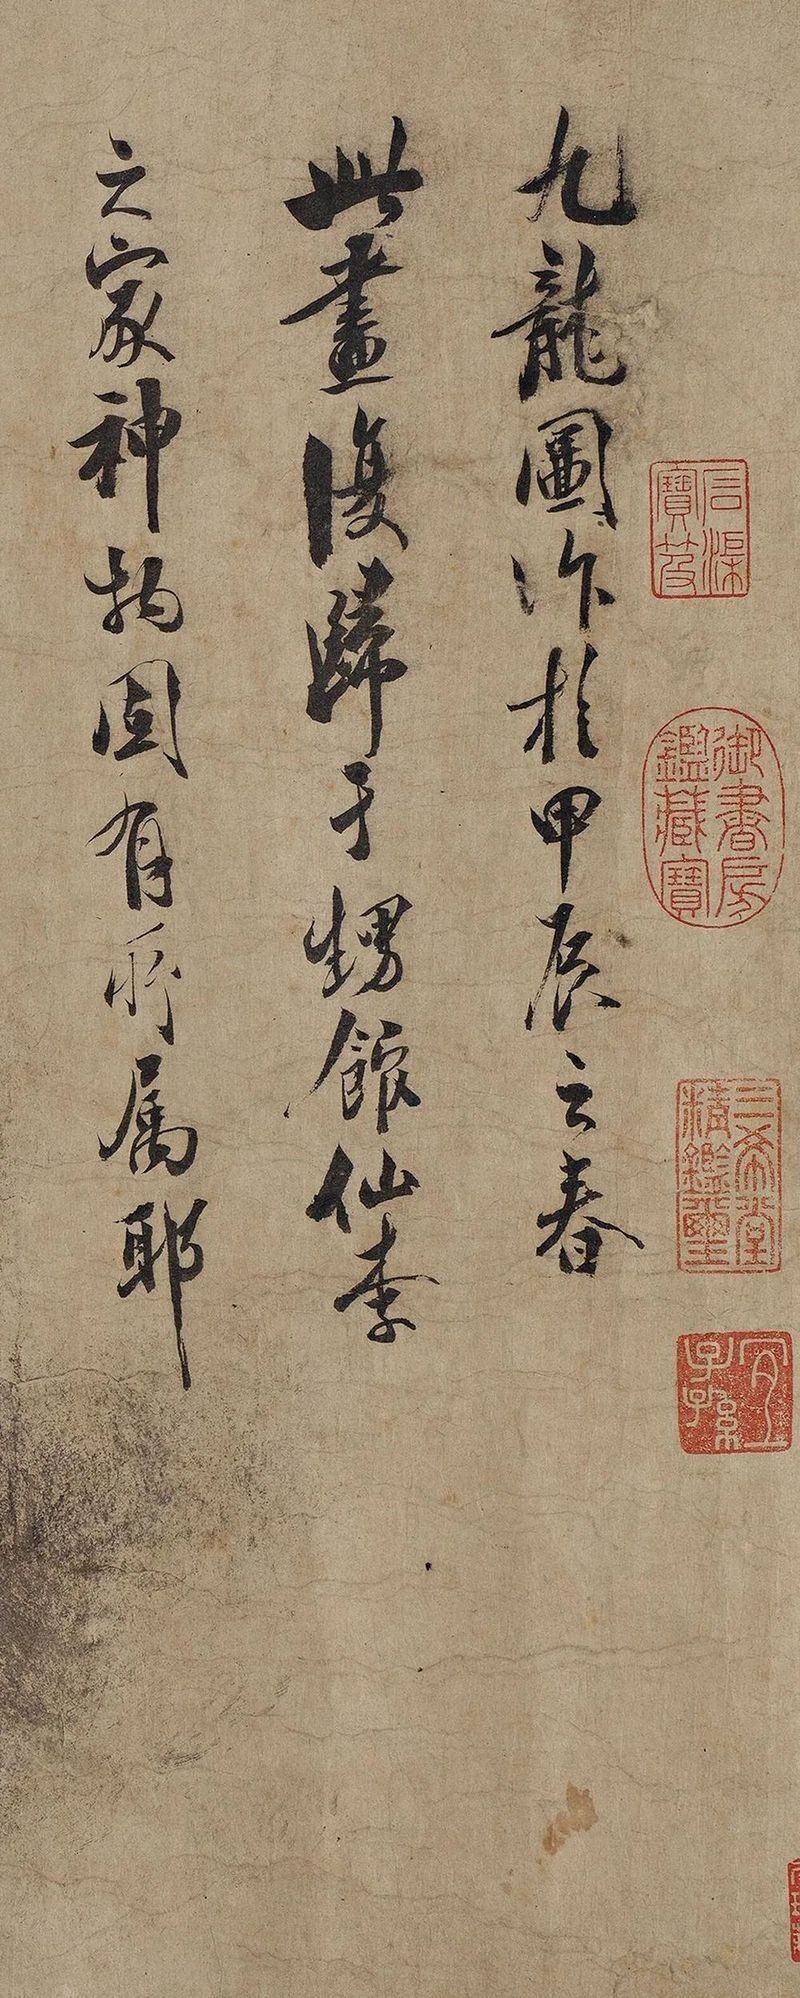 九龍圖作於甲辰之春
此畫復歸于甥館仙李
之家神物固有所属耶
石渠寶笈
御書房鑑藏寶
三希堂精鑑璽
宜子孫